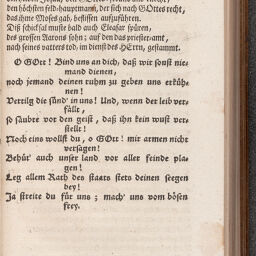 den höchsten feld-hauptmann, der sich nach GOttes recht,
das ihme Moses gab, beflissen aufzuführen.
Diß schicksal muste bald auch Eleasar spüren,
des grossen Aarons sohn; auf den das priester-amt,
nach seines vatters tod, im dienst des HErrn, gestammt.
O GOtt! Bind uns an dich, daß wir sonst nie-
mand dienen,
noch jemand deinen ruhm zu geben uns erküh-
nen!
Vertilg die sünd' in uns! Und, wenn der leib ver-
fällt,
so säubre vor den geist, daß ihn kein wust ver-
stellt!
Noch eins wollst du, o GOtt! mir armen nicht
versagen!
Behüt' auch unser land vor aller feinde pla-
gen!
Leg allem Rath des staats stets deinen seegen
bey!
Ja streite du für uns; mach' uns vom bösen
frey.